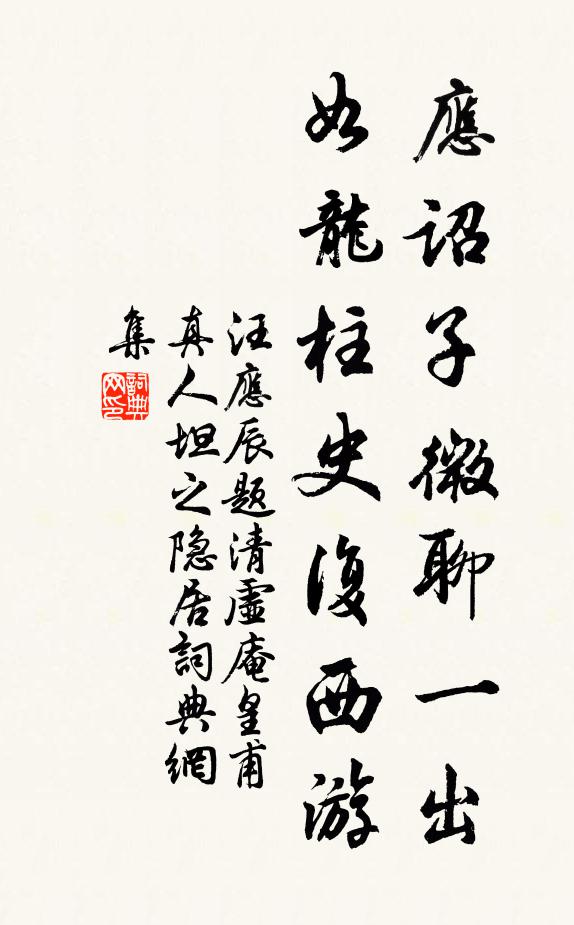 應詔子微聊一出
如龍柱史復西游
汪應辰题清虛庵皇甫
真人坦之隐居詞典網
集
詞典
网印